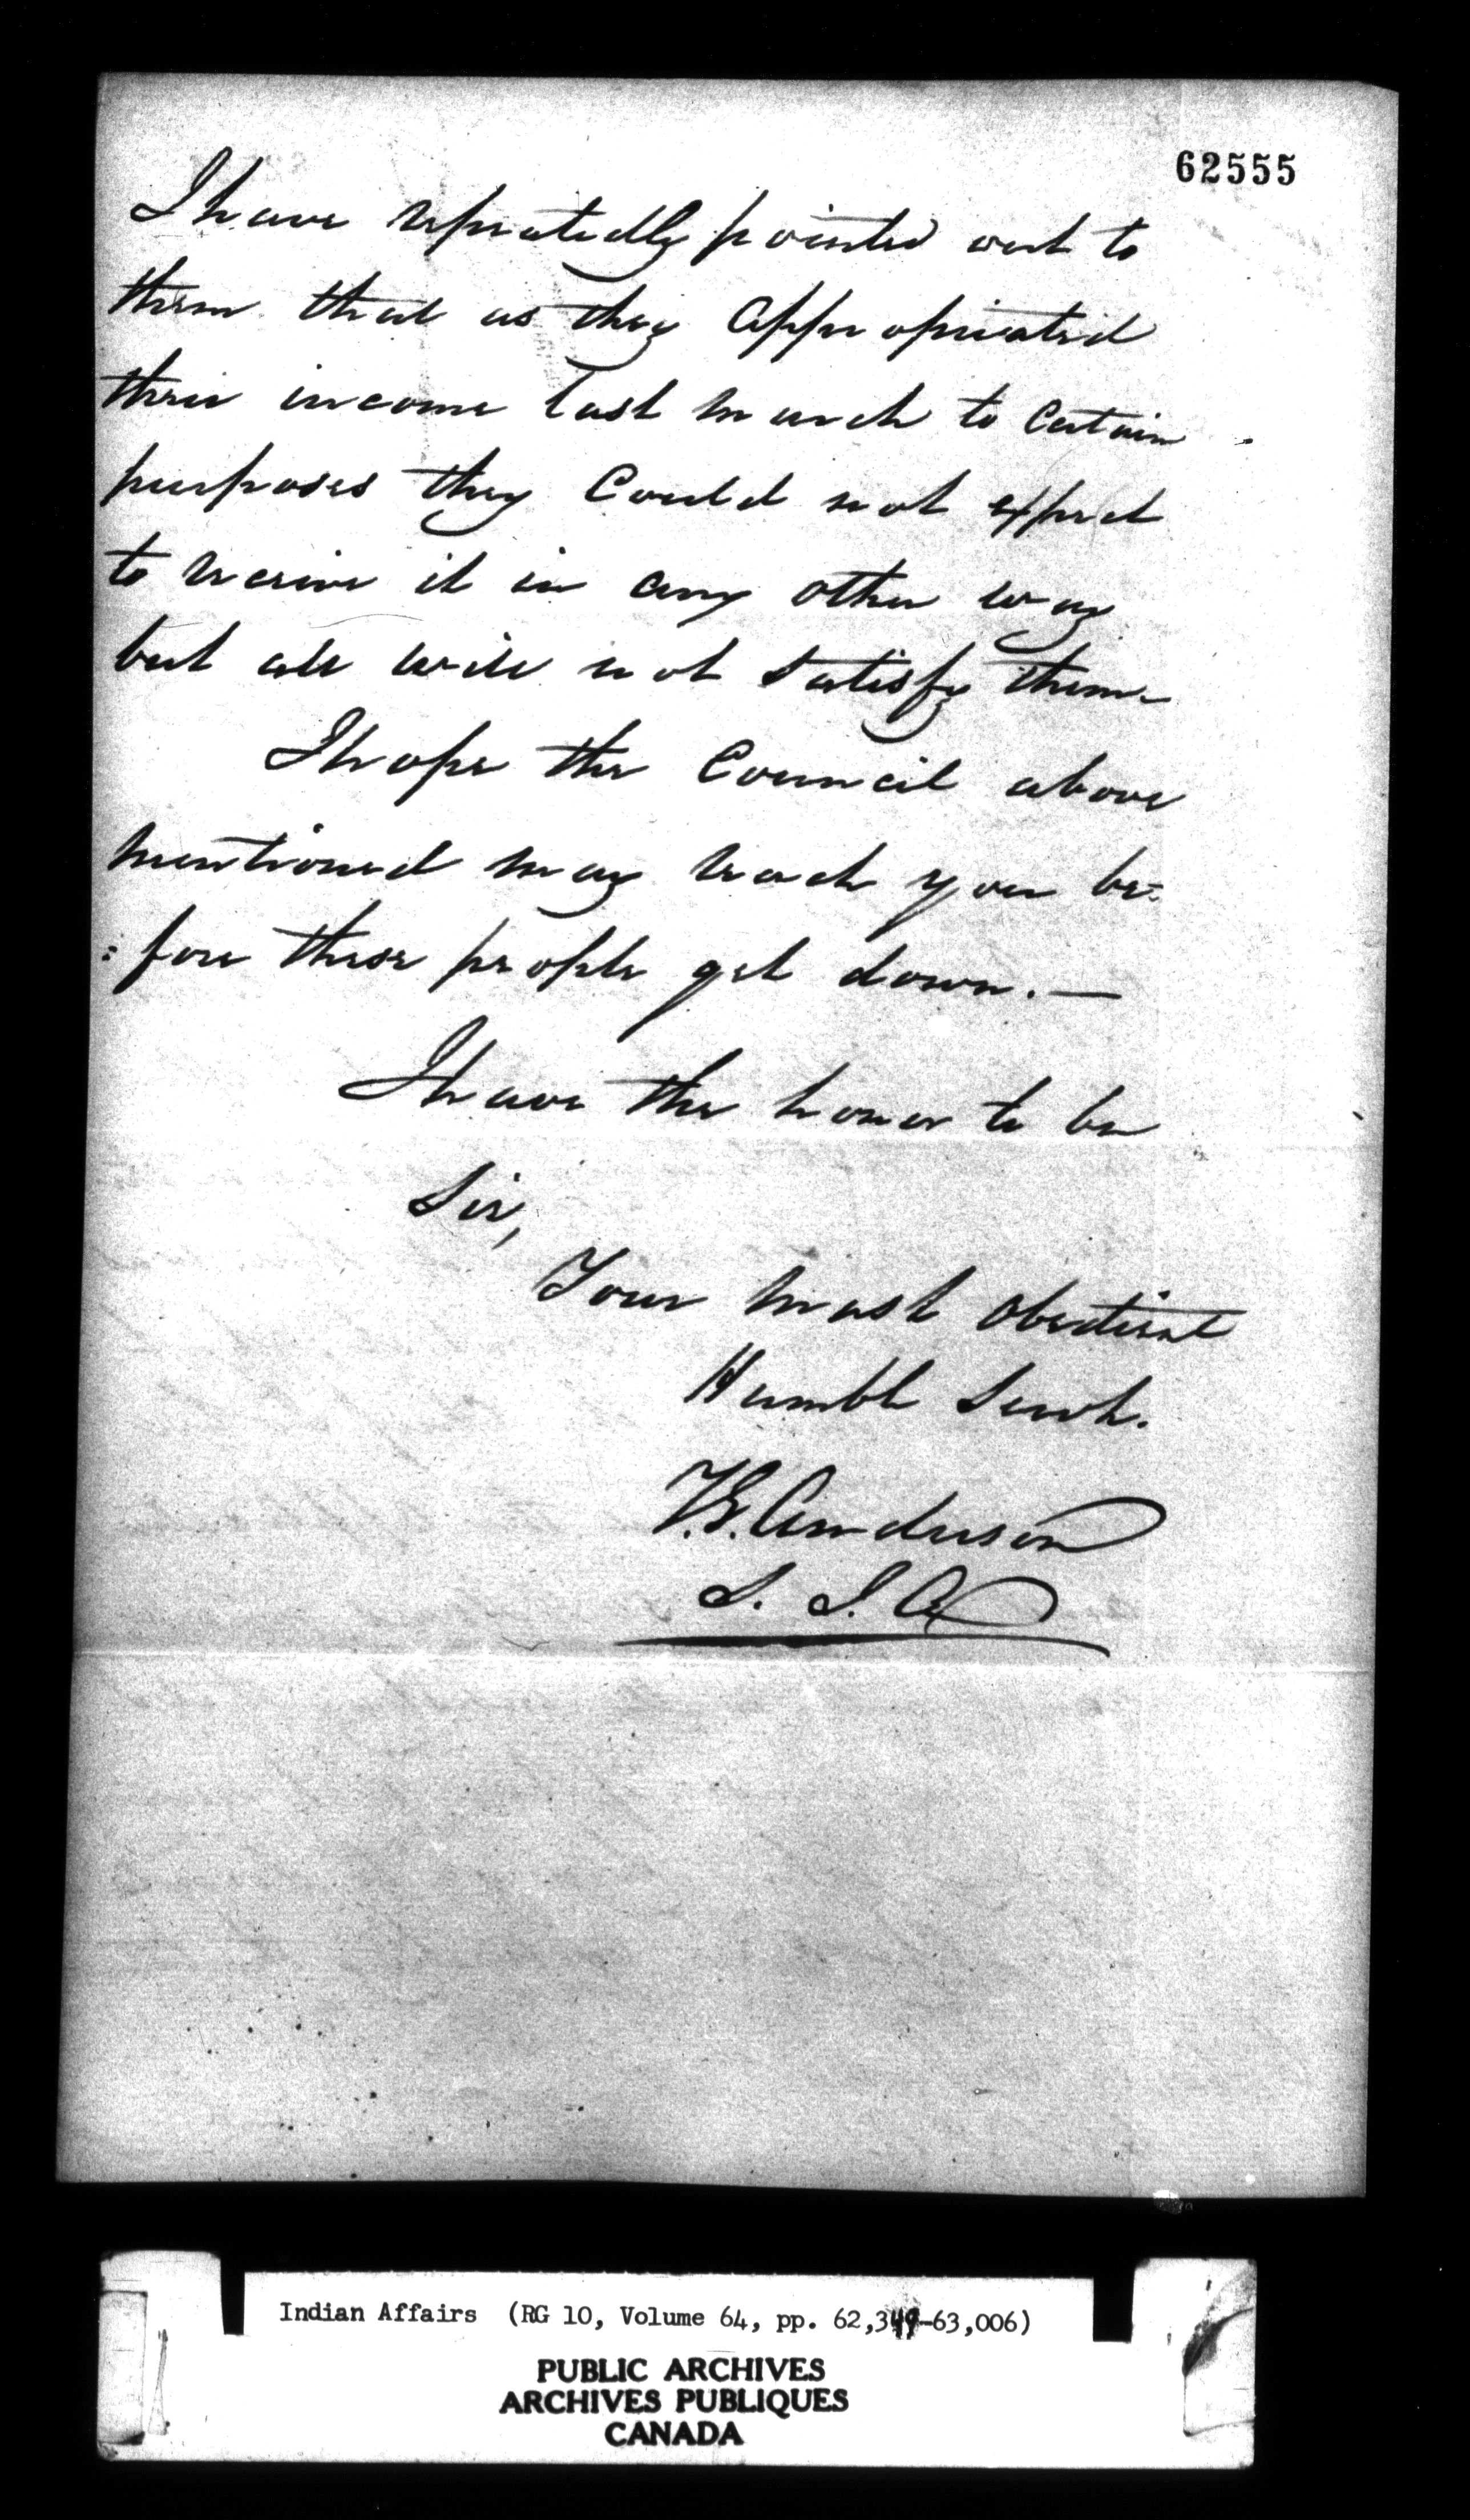 62555
I have repeatedly pointed out to
them that as they appropriated
their income last March to Certain
purposes they Could not expect
to receive it in any other way
but all will not satisfy them-
I hope the Council above
mentioned may reach you be=
=fore these people get down. —
I have the honor to be
Sir,
Your most obedient
Humble Servt.
T.G. Anderson
S. I. A
Indian Affairs (RG 10, Volume 64, pp. 62,349-63,006)
PUBLIC ARCHIVES
ARCHIVES PUBLIQUES
CANADA